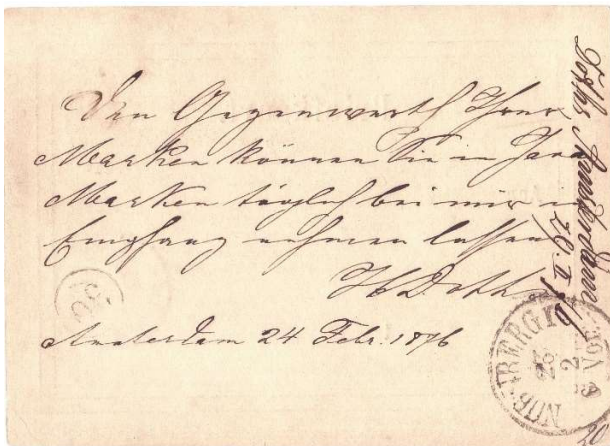 Den Gegenwerth Ihrer
Marken können Sie in Java
Marken täglich bei mir in
Empfang nehmen lassen
Amsterdam 24 Febr. 1876
Amsterdam
NÜRNBERG I
26
2
VOR 8
30